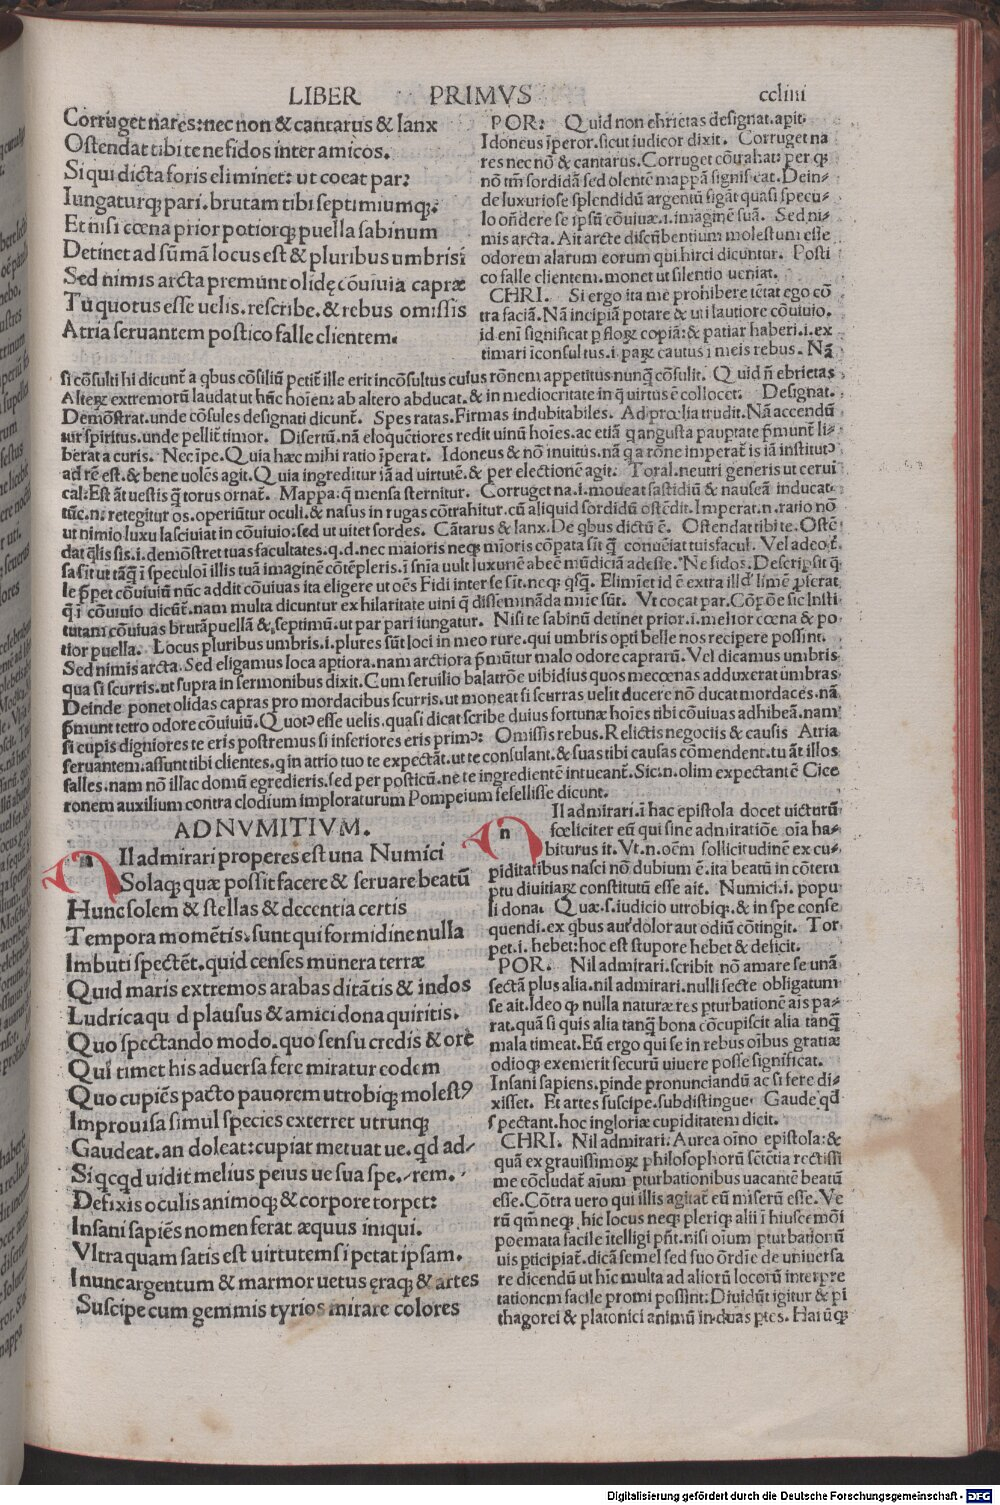 LIBER PRIMVS ccliiii
Corruget nares: nec non & cantarus & lanx
Ostendat tibi te ne fidos inter amicos.
Si qui dicta foris eliminet: ut coeat par:
Iungaturq; pari. brutam tibi septimiumq;:
Et nisi cœna prior potiorq; puella sabinum
Detinet ad sūmā locus est & pluribus umbris:
Sed nimis arcta premunt olidę cōuiuia capræ
Tu quotus esse uelis. rescribe. & rebus omissis
Atria seruantem postico falle clientem.
POR: Quid non ebrietas designat. apit
Idoneus īperor. sicut iudicor dixit. Corruget na
res nec nō & cantarus. Corruget cōtrahat: per qꝫ
nō tm̄ sordidā sed olentē mappā significat. Dein⸗
de luxuriose splendidū argentū sigāt quasi specu⸗
lo on̄dere se ipsū cōuiuæ. i. imaginē suā. Sed ni⸗
mis arcta. Ait arcte discūbentium molestum esse
odorem alarum eorum qui hirci dicuntur. Posti
co falle clientem. monet ut silentio ueniat.
CHRI. Si ergo ita me prohibere tētat ego cō
tra faciā. Nā incipiā potare & uti lautiore cōuiuio.
id enī significat ꝑ floꝝ copiā: & patiar haberi. i. ex
timari īconsultus. i. paꝝ cautus ī meis rebus. Nā
si cōsulti hi dicunt̄ a qbus cōsiliū petit̄ ille erit incōsultus cuius rōnem appetitus nunq̄ cōsulit. Quid n̄ ebrietas
Alteꝝ extremorū laudat ut hūc hoīem: ab altero abducat. & in mediocritate in q̄ uirtus ē collocet: Designat.
Demōstrat. unde cōsules designati dicunt̄. Spes ratas. Firmas indubitabiles. Ad prœlia trudit. Nā accendū
tur spiritus. unde pellit̄ timor. Disertū. nā eloquētiores redit uinū hoīes. ac etiā q angusta paupertate p̄munt̄ li⸗
berat a curis. Nec īpe. Quia hæc mihi ratio īperat. Idoneus & nō inuitus. nā q a rōne imperat̄ is iā institutꝰ
ad rē est. & bene uolēs agit. Quia ingreditur iā ad uirtutē. & per electionē agit. Toral. neutri generis ut cerui
cal: Est āt uestis q̄ torus ornat̄. Mappa: q̄ mensa sternitur. Corruget na. i. moueat fastidiū & nauseā inducat:
tūc. n. retegitur os. operiūtur oculi. & nasus in rugas cōtrahitur. cū aliquid sordidū ostēdit. Imperat. n. ratio nō
ut nimio luxu lasciuiat in cōuiuio: sed ut uitet sordes. Cātarus & lanx. De qbus dictū ē. Ostendat tibi te. Ostē
dat q̄lis sis. i. demōstret tuas facultates. q. d. nec maioris neq; mīoris cōpata sit q̄ conueīat tuis facul. Vel adeo t̄.
sa sit ut tāq̄ ī speculoī illis tuā imaginē cōtēpleris.
le p̄pet cōuiuiū nūc addit cōuiuas ita eligere ut oēs Fidi inter se sīt. neq; qsq̄.
q̄ ī cōuiuio dicūt̄. nam multa dicuntur ex hilaritate uini q̄ dissemināda mīīe sūt. Vt coeat par. Cōpōe sic Insti
tutam cōuiuas brutā puellā & septimū. ut par pari iungatur. Nisi te sabinū detinet prior. i. melior cœna & po
tior puella. Locus pluribus umbris. i. plures sūt loci in meo rure. qui umbris opti belle nos recipere possint.
Sed nimis arcta. Sed eligamus loca aptiora. nam arctiora p̄mūtur malo odore caprarū. Vel dicamus umbris
qua si scurris. ut supra in sermonibus dixit. Cum seruilio balatrōe uibidius quos mecœnas adduxerat umbras
Deinde ponet olidas capras pro mordacibus scurris. ut moneat si scurras uelit ducere nō ducat mordaces. nā
p̄munt tetro odore cōuiuiū. Quotꝰ esse uelis. quasi dicat scribe cuius fortunæ hoīes tibi cōuiuas adhibeā. nam
si cupis digniores te eris postremus si inferiores eris primꝰ: Omissis rebus. Relictis negociis & causis Atria
seruantem. assunt tibi clientes. q in atrio tuo te expectāt. ut te consulant. & suas tibi causas cōmendent. tu āt illos
falles. nam nō illac domū egredieris. sed per posticū. ne te ingredientē intueant̄. Sic. n. olim expectantē Cice
ronem auxilium contra clodium imploraturum Pompeium fefellisse dicunt.
AD NVMITIVM.
n Il admirari prope res est una Numici
Solaq; quæ possit facere & seruare beatū
Hunc solem & stellas & decentia certis
Tempora momētis. sunt qui formidine nulla
Imbuti spectēt. quid censes munera terræ
Quid maris extremos arabas ditātis & indos
Ludrica qu d plausus & amici dona quiritis.
Quo spectando modo. quo sensu credis & ore
Qui timet his aduersa fere miratur eodem
Quo cupiēs pacto pauorem utrobiq; molestꝰ
Improuisa simul species exterret utrunq;
Gaudeat. an doleat: cupiat metuat ue. qd ad⸗
Si qcqd uidit melius peius ue sua spe. rem.
Defixis oculis animoq; & corpore torpet:
Insani sapiēs nomen ferat æquus iniqui.
Vltra quam satis est uirtutem si petat ipsam.
I nunc argentum & marmor uetus ęraq; & artes
Suscipe cum gemmis tyrios mirare colores
n Il admirari. ī hac epistola docet uicturū
fœliciter eū qui sine admiratiōe oīa ha⸗
biturus it. Vt. n. oēm sollicitudinē ex cu⸗
piditatibus nasci nō dubium ē. ita beatū in cōtem
ptu diuitiaꝝ constitutū esse ait. Numici. i. popu
li dona. Quæ. s. iudicio utrobiq;. & in spe conse
quendi. ex qbus aut dolor aut odiū cōtingit. Tor
pet. i. hebet: hoc est stupore hebet & deficit.
POR. Nil admirari. scribit nō amare se unā
sectā plus alia. nil admirari. nulli secte obligatum
se ait. Ideo qꝫ nulla naturæ res pturbationē ais pa⸗
rat. quā si quis alia tanq̄ bona cōcupiscit alia tanq̄
mala timeat. Eū ergo qui se in rebus oībus gratiæ
odioq; exemerit securū uiuere posse significat.
Insani sapiens. pinde pronunciandū ac si fere di⸗
xisset. Et artes suscipe. subdistingue: Gaude qd
spectant. hoc ingloriæ cupiditatem dicit.
CHRI. Nil admirari. Aurea oīno epistola: &
quā ex grauissimoꝝ philosophorū sētētia rectissi
me cōcludat̄ aīum pturbationibus uacantē beatū
esse. Cōtra uero qui illis agitat̄ eū miserū esse. Ve
rū qm̄ neq; hic locus neq; pleriq; alii ī hiusce mōi
poemata facile ītelligi pn̄t. nisi oīum pturbationū
uis pticipiat̄. dicā semel sed suo ōrdīe de uniuersa
re dicendū ut hic multa ad aliorū locorū interpre
tationem facile promi possint: Diuidūt igitur & pi
thagorei & platonici animū in duas ptes. Harūqꝫ
Digitalisierung gefördert durch die Deutsche Forschungsgemeinschaft - DFG